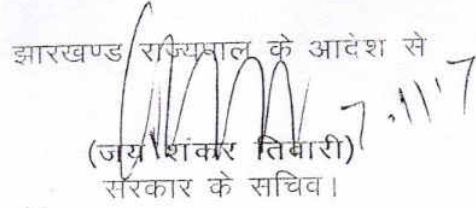 झारखण्ड राज्यपाल के आदेश से
7.11.17
(जय शंकर तिवारी)
सरकार के सचिव।